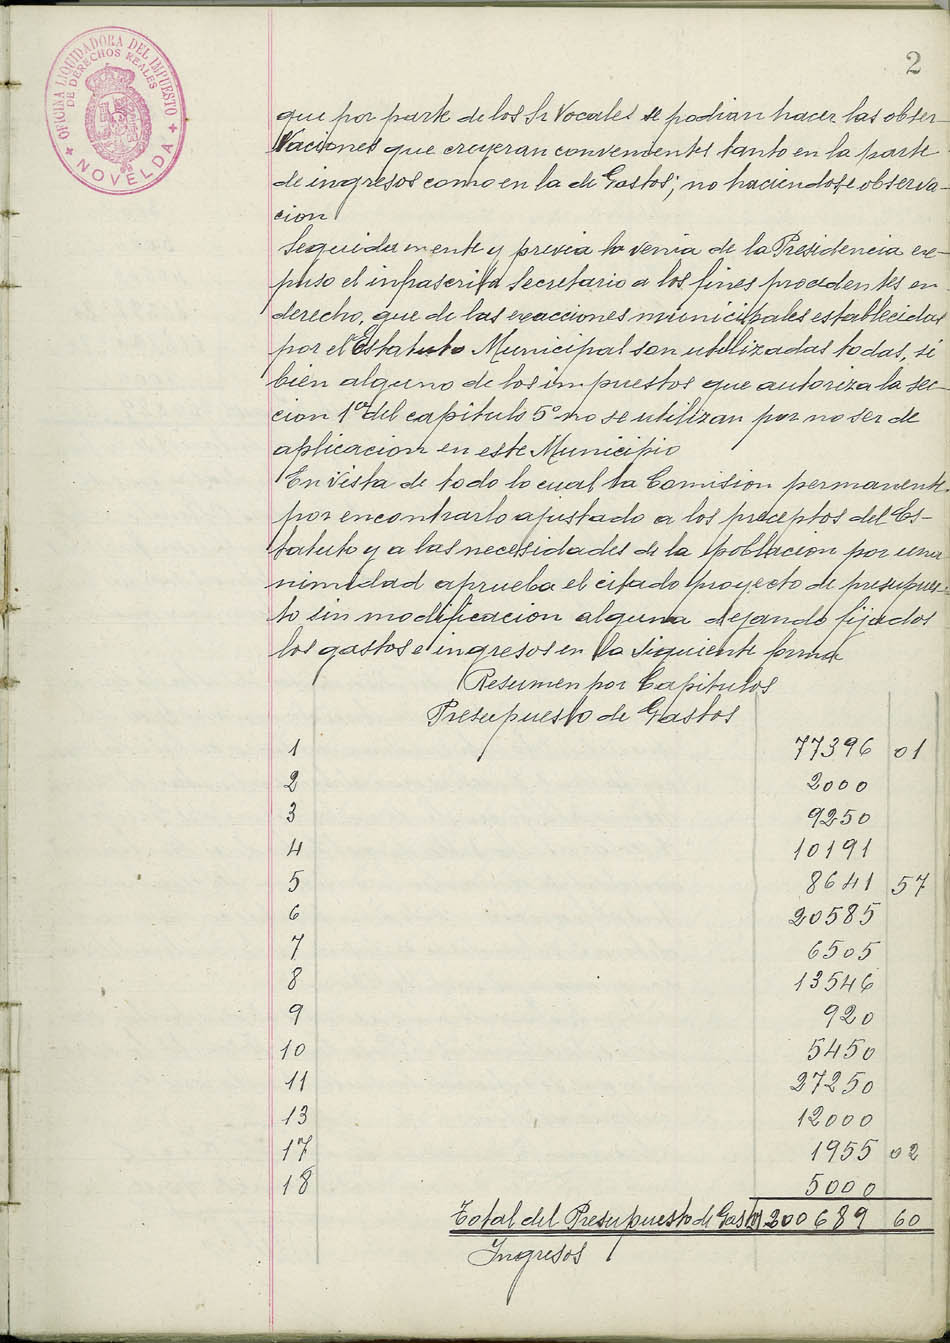 2
OFICINA LIQUIDADORA DEL IMPUESTO
DE DERECHOS REALES
NOVELDA
que por parte de los Sr Vocales se podian hacer las obser-
vaciones que creyeran convenientes tanto en la parte
de ingresos como en la de Gastos; no haciendose observa-
cion
Seguidamente y previa la venia de la Presidencia ex-
puso el infrascrito Secretario a los fines procedentes en
derecho, que de las exacciones municipales establecidas
por el Estatuto Municipal son utilizadas todas, si
bien alguno de los impuestos que autoriza la sec-
cion 1ª del capitulo 5º no se utilizan por no ser de
aplicacion en este Municipio
En vista de todo lo cual la Comision permanente
por encontrarlo ajustado a los preceptos del Es-
tatuto y a las necesidades de la poblacion por una-
nimidad aprueba el citado proyecto de presupues-
to sin modificacion alguna dejando fijados
los gastos e ingresos en la siguiente forma
Resumen por Capitulos
Presupuesto de Gastos
1 77396 01
2 2000
3 9250
4 10191
5 8641 57
6 20585
7 6505
8 13546
9 920
10 5450
11 27250
13 12000
17 1955 02
18 5000
Total del Presupuesto de Gastos 200689 60
Ingresos